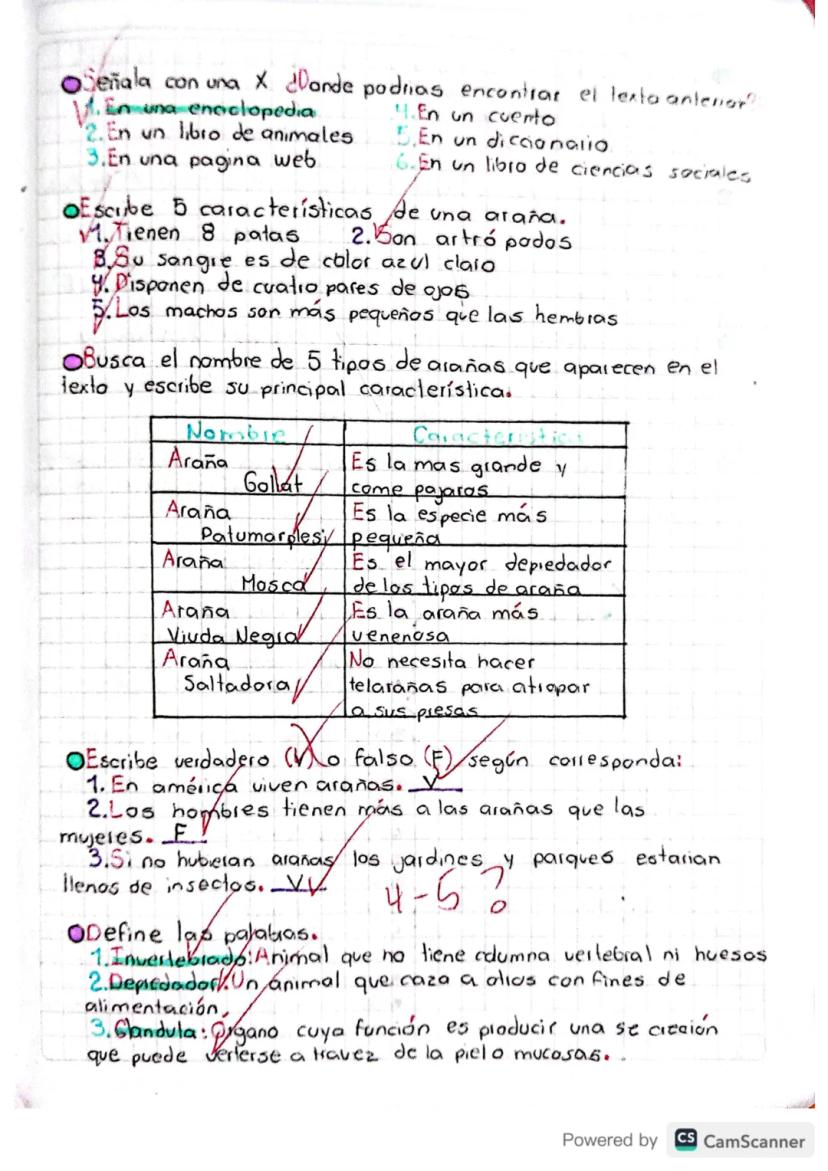 Señala con una X ¿Donde podrias encontrar el texto anterior?
1. En una enciclopedia 4. En un cuento
2. En un libro de animales 5. En un diccionario
3. En una pagina web 6. En un libro de ciencias sociales
Escribe 5 características de una araña.
1. Tienen 8 patas 2. Son artró podos
3. Su sangre es de color azul claro
4. Disponen de cuatro pares de ojos
5. Los machos son más pequeños que las hembras
Busca el nombre de 5 tipos de arañas que aparecen en el
texto y escribe su principal característica.
Nombre Caracteristica
Araña Goliat Es la mas grande y
come pajaros
Araña Es la especie más
Patumarplesi pequeña
Araña Es el mayor depredador
Mosca de los tipos de araña
Araña Es la araña más
Viuda Negra venenosa
Araña No necesita hacer
Saltadora telarañas para atrapar
a sus presas
Escribe verdadero (V) o falso (F) según corresponda:
1. En américa viven arañas. V
2. Los hombres tienen más a las arañas que las
mujeres. F
3. Si no hubieran arañas los jardines y parques estarian
llenos de insectos. V
4-5?
Define las palabras.
1. Invertebrado: Animal que no tiene columna vertebral ni huesos
2. Depredador: Un animal que caza a otros con fines de
alimentación.
3. Glandula: Organo cuya función es producir una se creción
que puede verterse a travez de la piel o mucosas.
Powered by CS CamScanner